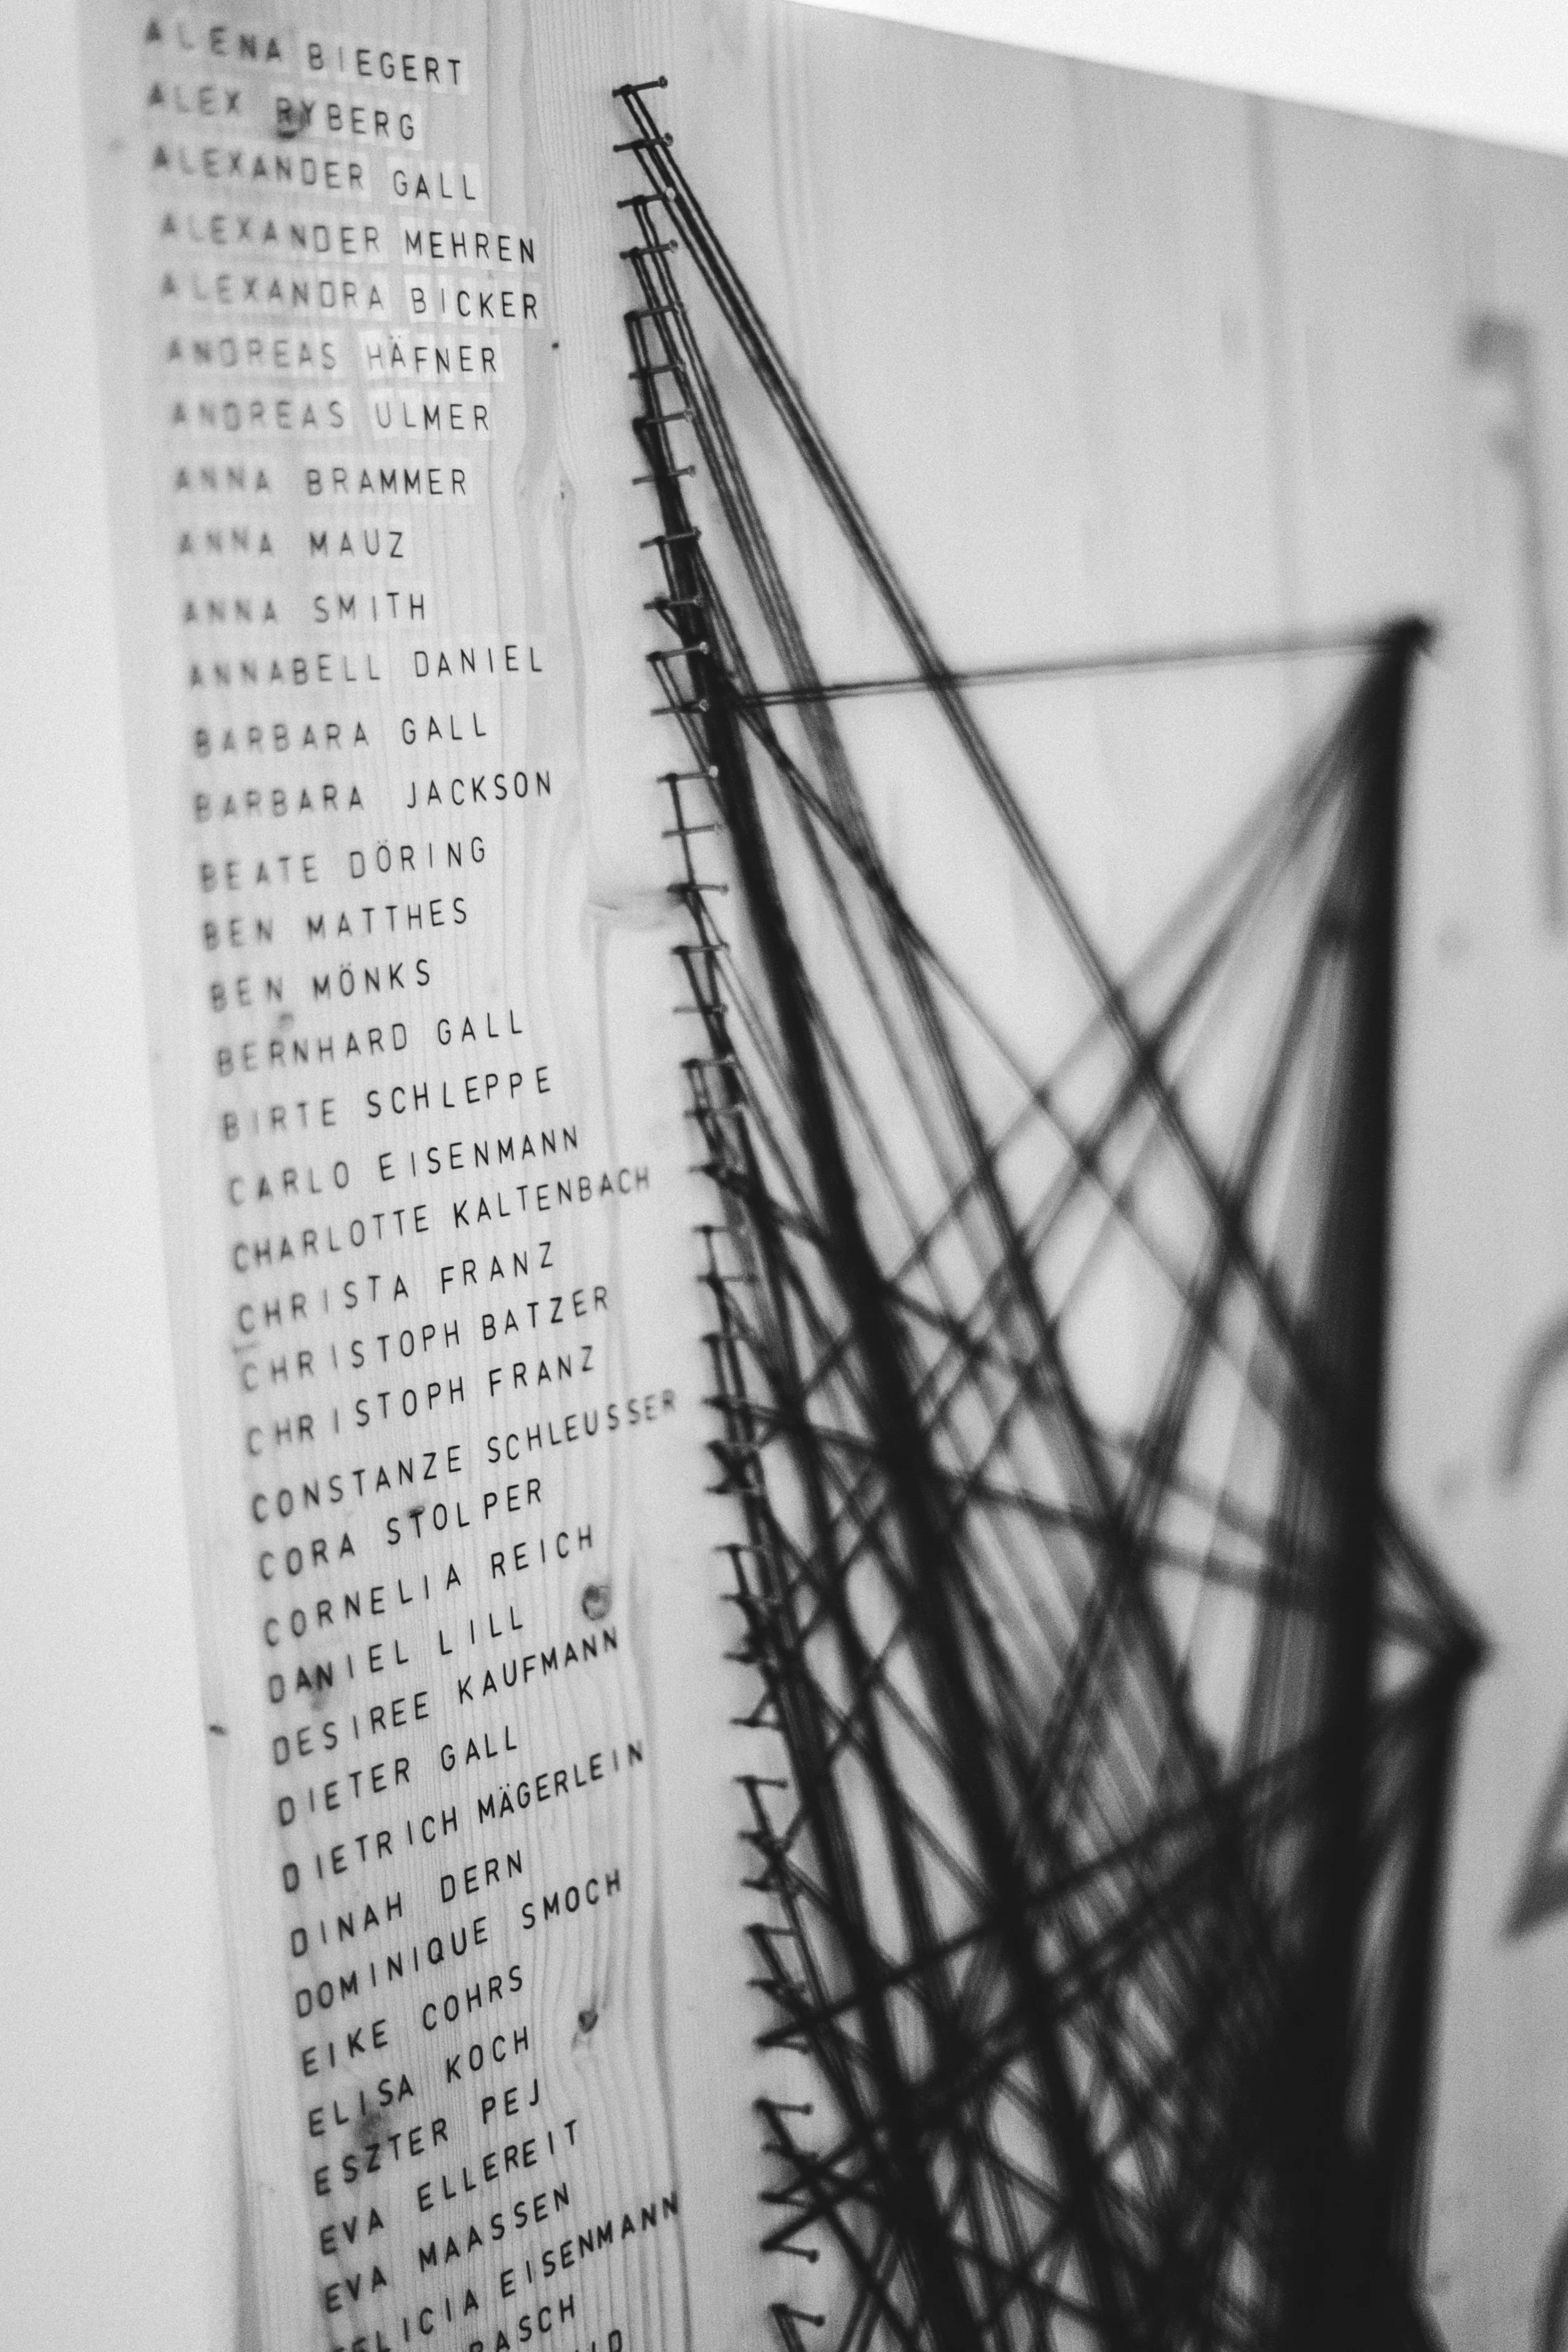 ALENA BIEGERT
ALEX RYBERG
ALEXANDER GALL
ALEXANDER MEHREN
ALEXANDRA BICKER
ANDREAS HÄFNER
ANDREAS ULMER
ANNA BRAMMER
ANNA MAUZ
ANNA SMITH
ANNABELL DANIEL
BARBARA GALL
BARBARA JACKSON
BEATE DÖRING
BEN MATTHES
BEN MÖNKS
BERNHARD GALL
BIRTE SCHLEPPE
CARLO EISENMANN
CHARLOTTE KALTENBACH
CHRISTA FRANZ
CHRISTOPH BATZER
CHRISTOPH FRANZ
CONSTANZE SCHLEUSSER
CORA STOLPER
CORNELIA REICH
DANIEL LILL
DESIREE KAUFMANN
DIETER GALL
DIETRICH MÄGERLEIN
DINAH DERN
DOMINIQUE SMOCH
EIKE COHRS
ELISA KOCH
ESZTER PEJ
EVA ELLEREIT
EVA MAASSEN
FELICIA EISENMANN